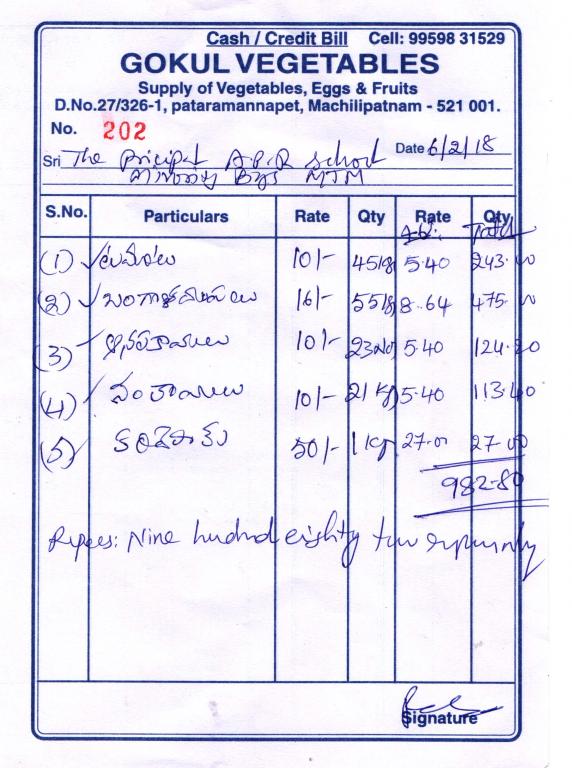 Cash / Credit Bill Cell: 99598 31529
GOKUL VEGETABLES
Supply of Vegetables, Eggs & Fruits
D.No.27/326-1, pataramannapet, Machilipatnam - 521 001.
No. 202
Date 6/2/18
Sri The Pricipal A.P.R School
Minority Boys MTM
S.No. Particulars Rate Qty Rate Qty
Total
(1) టమాటాలు 10/- 45kg 5.40 243.00
(2) బంగాళదుంపలు 16/- 55kg 8.64 475.20
(3) ఆనపకాయలు 10/- 23 5.40 124.20
(4) వంకాయలు 10/- 21 kg 5.40 113.40
(5) కరివేపాకు 50/- 1 kg 27.00 27.00
982-80
Rupees: Nine hundred eighty two rupees only
Signature